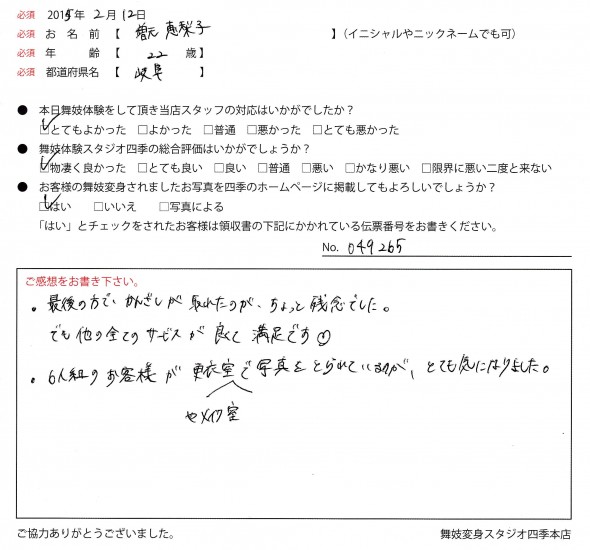 必須 2015年2月12日
必須 お名前【 増元 恵梨子 】(イニシャルやニックネームでも可)
必須 年齢【 22 歳】
必須 都道府県名【 岐阜 】
● 本日舞妓体験をして頂き当店スタッフの対応はいかがでしたか?
□とてもよかった □よかった □普通 □悪かった □とても悪かった
● 舞妓体験スタジオ四季の総合評価はいかがでしょうか?
□物凄く良かった □とても良い □良い □普通 □悪い □かなり悪い □限界に悪い二度と来ない
● お客様の舞妓変身されましたお写真を四季のホームページに掲載してもよろしいでしょうか?
□はい □いいえ □写真による
「はい」とチェックをされたお客様は領収書の下記にかかれている伝票番号をお書きください。
No. 049265
ご感想をお書き下さい。
・最後の方で、かんざしが取れたのが、ちょっと残念でした。
でも他の全てのサービスが良くて満足です
・6人組のお客様が更衣室で写真をとられているのが、とても気になりました。
やメイク室
ご協力ありがとうございました。
舞妓変身スタジオ四季本店